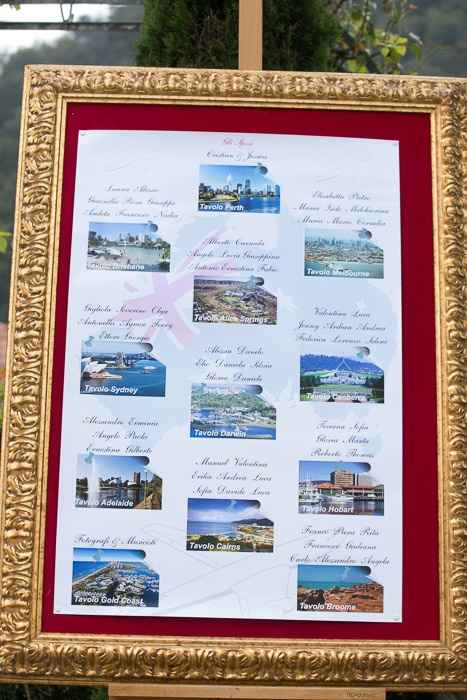 Gli Sposi
Cristian & Jessica
Tavolo Perth
Laura Alessio
Graziella Rosa Giuseppe
Andrea Francesco Nadia
Tavolo Brisbane
Elisabetta Pietro
Maria Melchiorina
Maria Mario Corradio
Tavolo Melbourne
Alberto Carmela
Angelo Luca Giuseppina
Antonio Ernestina Fabio
Tavolo Alice Springs
Gigliola Severino Olga
Antonella Agnese Jenny
Ettore Giorgia
Tavolo Sydney
Valentina Luca
Jenny Adrian Andrea
Federica Lorenzo
Tavolo Canberra
Alessia Davide
Elio Daniela Silvia
Gloria Daniele
Tavolo Darwin
Alessandro Erminia
Angelo Paola
Ernestina Gilberto
Tavolo Adelaide
Teresina Sofia
Gloria Marta
Roberto Thomas
Tavolo Hobart
Manuel Valentina
Erika Andrea Luca
Sofia Davide Luca
Tavolo Cairns
Fotografi & Musicisti
Tavolo Gold Coast
Franco Piera Rita
Francesco Giuliana
Carlo Alessandro Angela
Tavolo Broome